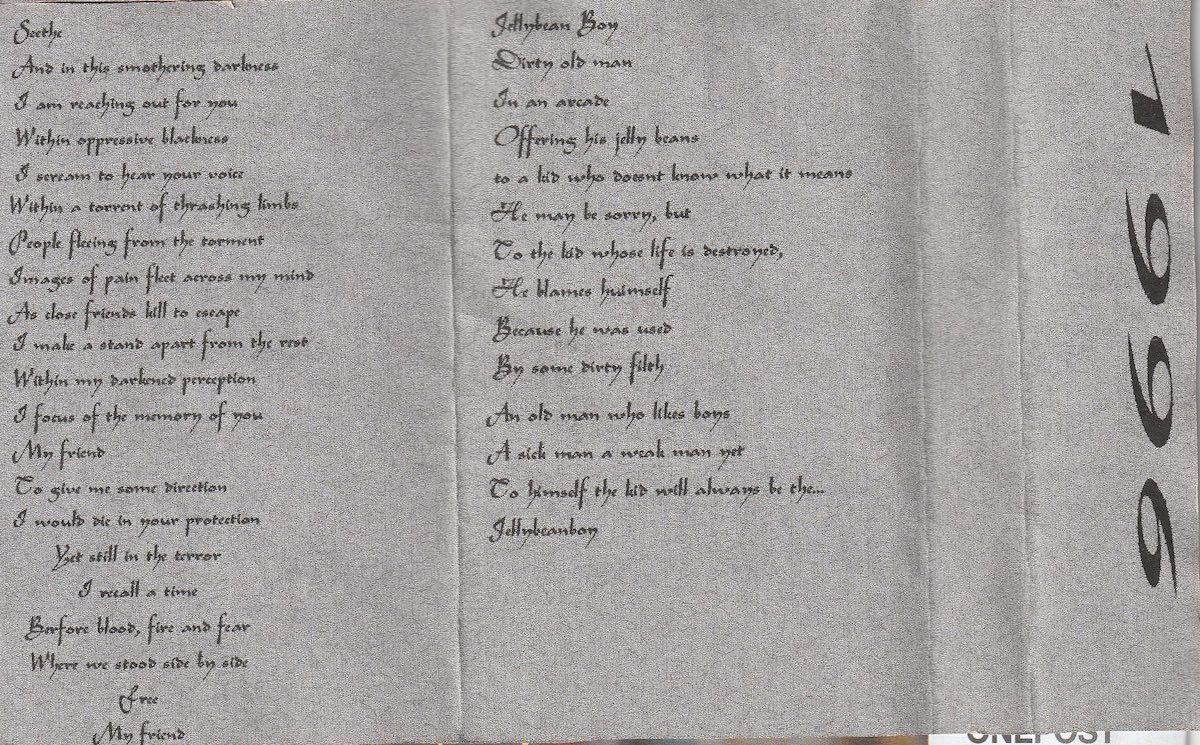 Seethe
And in this smothering darkness
I am reaching out for you
Within oppressive blackness
I scream to hear your voice
Within a torrent of thrashing limbs
People fleeing from the torment
Images of pain fleet across my mind
As close friends kill to escape
I make a stand apart from the rest
Within my darkened perception
I focus of the memory of you
My friend
To give me some direction
I would die in your protection
Yet still in the terror
I recall a time
Berfore blood, fire and fear
Where we stood side by side
Free
My friend
Jellybean Boy
Dirty old man
In an arcade
Offering his jelly beans
to a kid who doesnt know what it means
He may be sorry, but
To the kid whose life is destroyed,
He blames huimself
Because he was used
By some dirty filth
An old man who likes boys
A sick man a weak man yet
To himself the kid will always be the...
Jellybeanboy
1996
ONEPOST